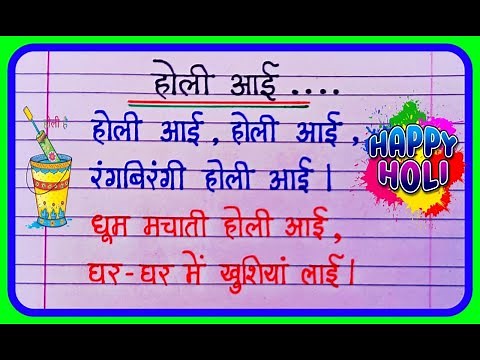 होली आई ....
होली आई , होली आई ,
रंगबिरंगी होली आई ।
धूम मचाती होली आई ,
घर-घर में खुशियां लाई ।
होली है
HAPPY
HOLI